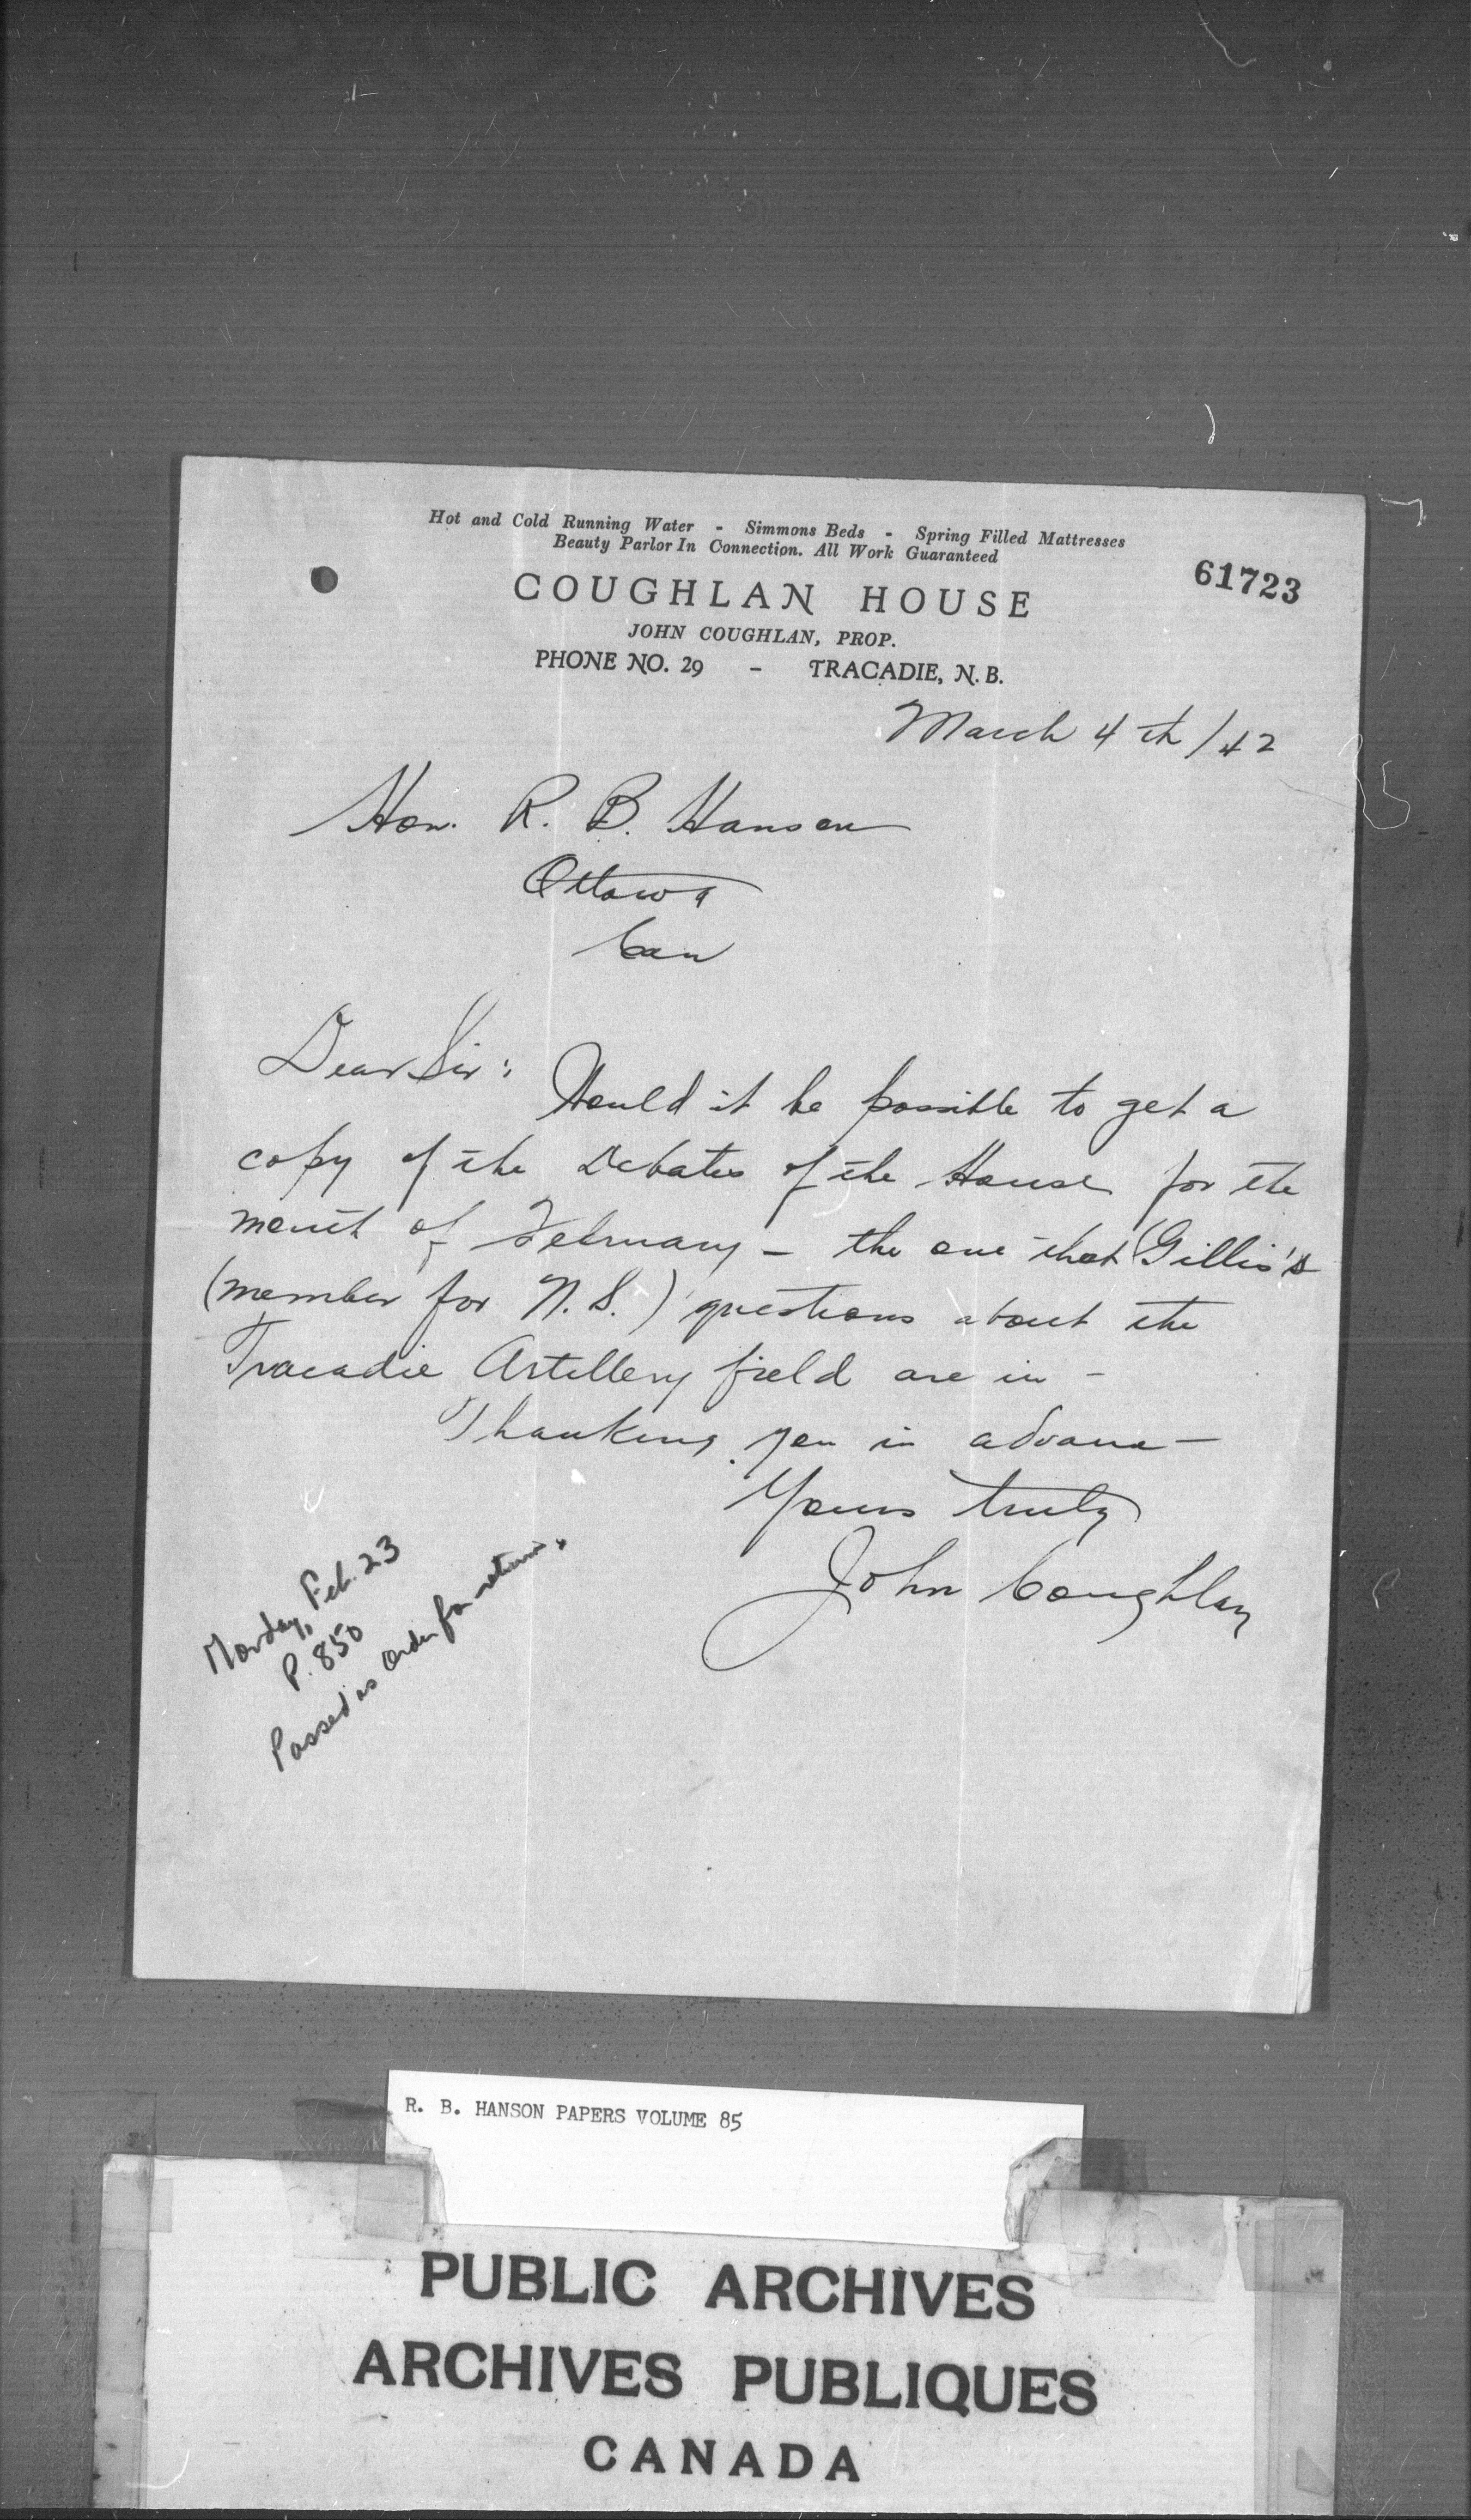 Hot and Cold Running Water - Simmons Beds - Spring Filled Mattresses
Beauty Parlor In Connection. All Work Guaranteed
61723
COUGHLAN HOUSE
JOHN COUGHLAN, PROP.
PHONE NO. 29 - TRACADIE, N. B.
March 4th /42
Hon. R. B. Hanson
Ottawa
Can
Dear Sir:
Would it be possible to get a
copy of the Debates of the House for the
mont of February - the one that Gillis's
(member for N. S.) questions about the
Tracadie Artillery field are in -
Thanking you in advance -
Yours truly
John Coughlan
Monday, Feb. 23
P. 850
Passed as order for return.
R. B. HANSON PAPERS VOLUME 85
PUBLIC ARCHIVES
ARCHIVES PUBLIQUES
CANADA